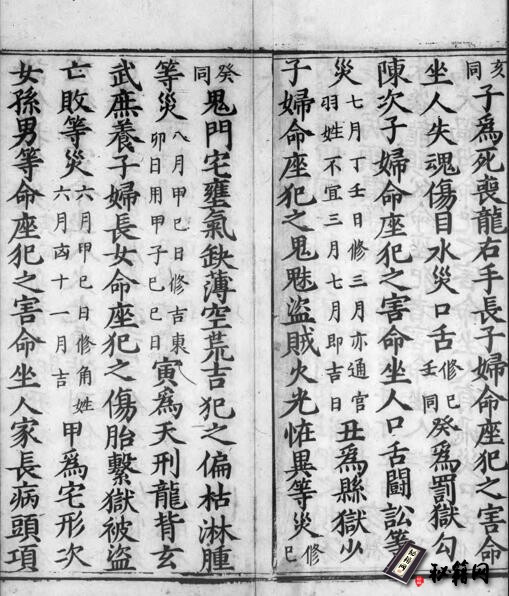 亥同子爲死喪龍右手長子婦命座犯之害命
坐人失魂傷目水災口舌修巳壬同癸爲罰獄勾
陳次子婦命座犯之害命坐人口舌鬪訟等
災七月丁壬日修三月亦通宫羽姓不宜三月七月即吉日丑爲縣獄少
子婦命座犯之鬼魅盜賊火光恠異等災修巳
癸同鬼門宅壅氣缺薄空荒吉犯之偏枯淋腫
等災八月甲巳日修吉東卯日用甲子巳巳日寅爲天刑龍背玄
武庶養子婦長女命座犯之傷胎繫獄被盜
亡敗等災六月甲巳日修角姓六月丙十一月吉甲爲宅形次
女孫男等命座犯之害命坐人家長病頭項
秘籍网